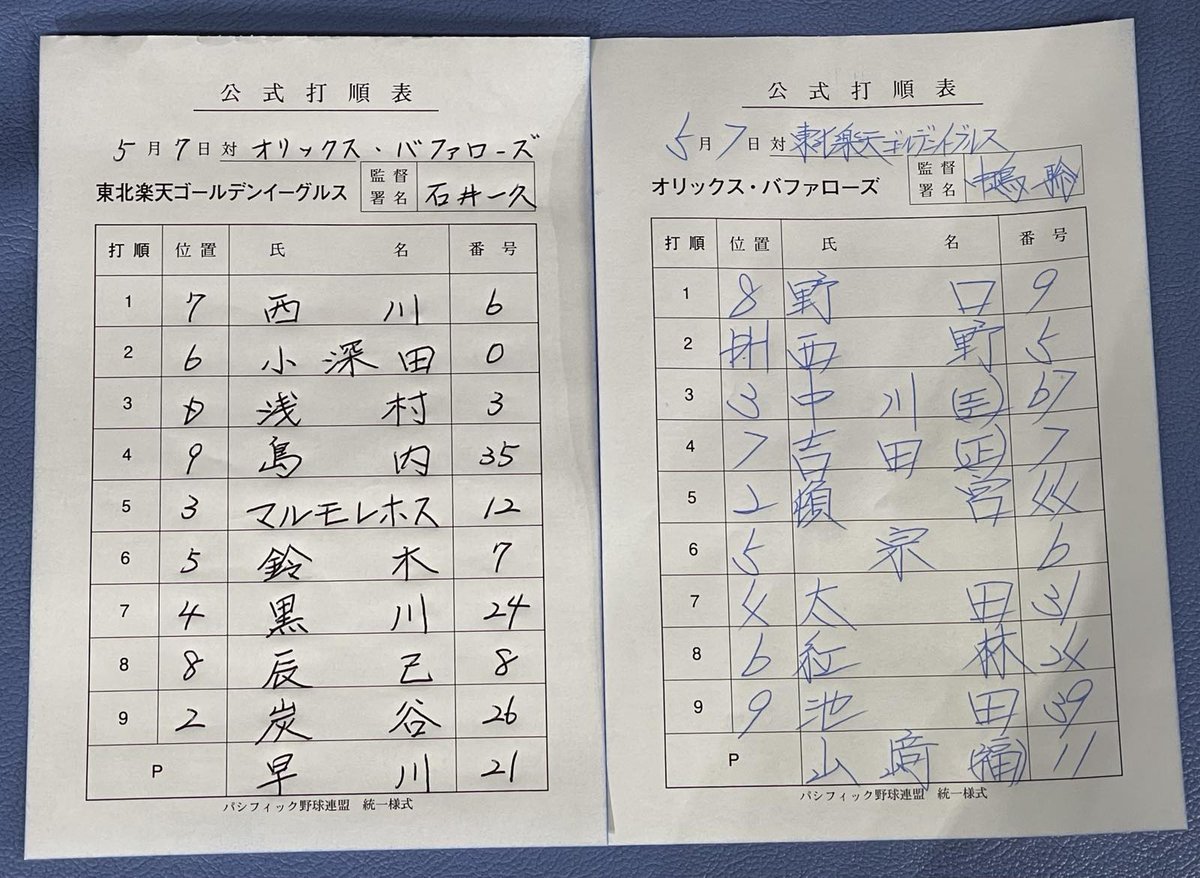 公式打順表
5月7日対 オリックス・バファローズ
東北楽天ゴールデンイーグルス 監督署名 石井一久
打順 位置 氏名 番号
1 7 西川 6
2 6 小深田 0
3 D 浅村 3
4 9 島内 35
5 3 マルモレホス 12
6 5 鈴木 7
7 4 黒川 24
8 8 辰己 8
9 2 炭谷 26
P 早川 21
パシフィック野球連盟 統一様式
公式打順表
5月7日対 東北楽天ゴールデンイーグルス
オリックス・バファローズ 監督署名 中嶋聡
打順 位置 氏名 番号
1 8 野口 9
2 DH 西野 5
3 3 中川(圭) 67
4 7 吉田(正) 7
5 2 頓宮 44
6 5 宗 6
7 4 太田 31
8 6 紅林 24
9 9 池田 39
P 山﨑(福) 11
パシフィック野球連盟 統一様式